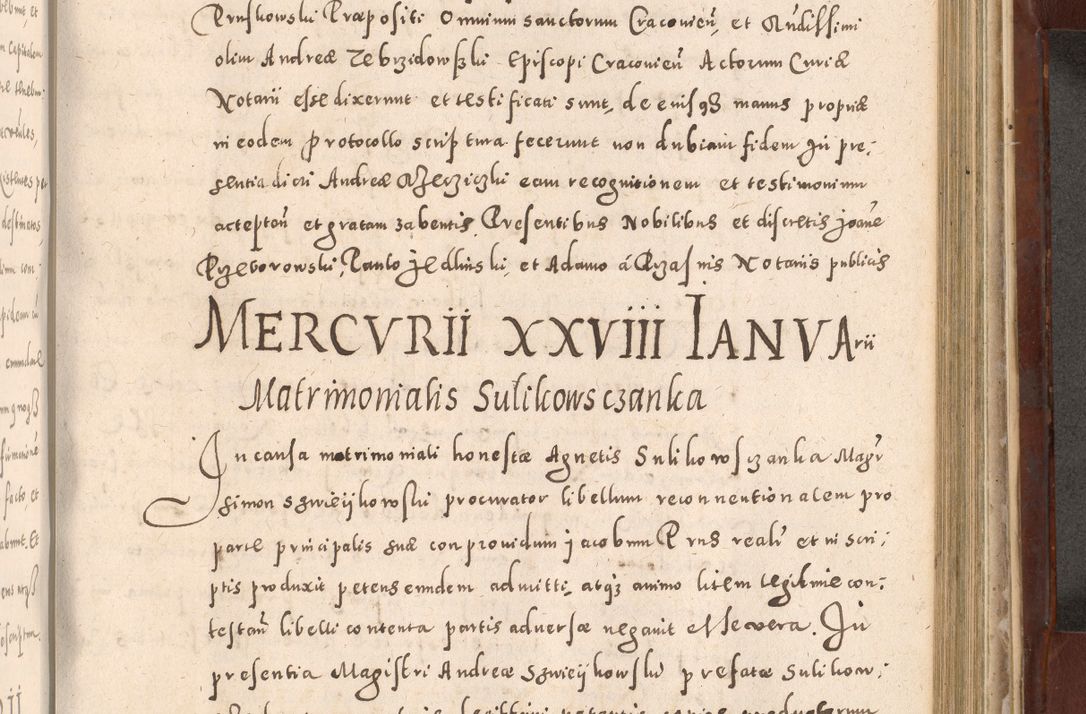 Prnskowski Præpositi Omnium sanctorum Cracovieñ, et Rñdissimi
olim Andreæ Zebrzidowski Episcopi Cracovieñ Actorum Curiæ
Notarii esse dixerunt et testificati sunt, de eius manus propriæ
in eodem Protocollo scriptura fecerunt non dubiam fidem In pre:
sentia dicti Andreæ eam recognitionem et testimonium
acceptañ et gratam habentis, Presentibus Nobilibus et discretis Joañe
Przeborowski, Paulo Jedlinski, et Adamo á Notariis publicis
MERCVRII XXVIII IANVArii
Matrimonialis Sulikowsczanka
In causa matrimoniali honestæ Agnetis Sulikowsczanka Magr̃
Simon procurator libellum reconventionalem pro
parte principalis suæ con providum Jacobum Prus reali et in scri:
ptis produxit petens eundem admitti, atqz animo litem legitime con:
testañ libelli contenta partis adversæ negavit esse vera. In
presentia Magistri Andreæ prefatæ Sulikow: